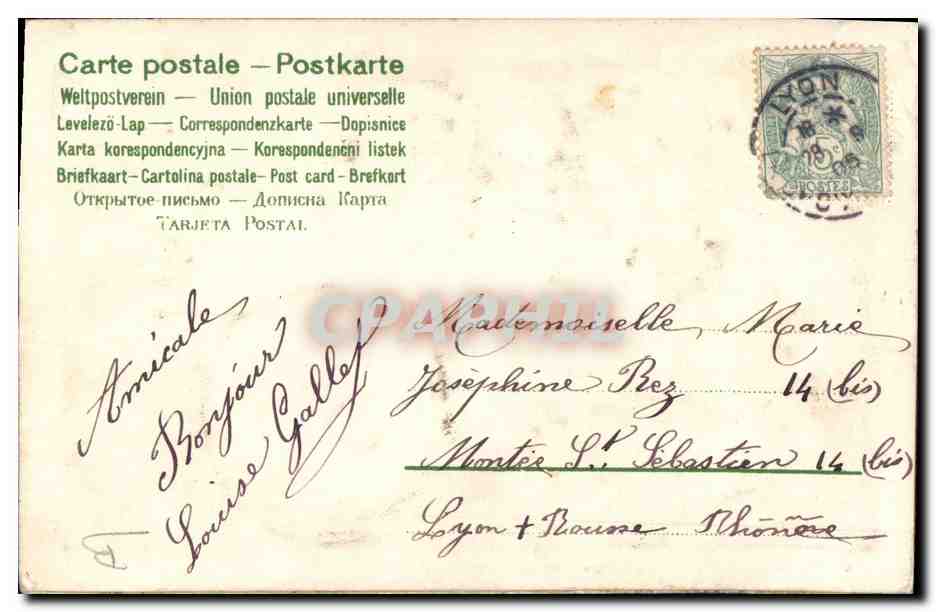 Carte postale – Postkarte
Weltpostverein — Union postale universelle
Levelezö-Lap — Correspondenzkarte — Dopisnice
Karta korespondencyjna — Korespondencni listek
Briefkaart – Cartolina postale – Post card – Brefkort
Открытое-письмо — Дописна Карта
Tarjeta Postal
LYON
18
POSTES
CPAPHIL
Amicale
Bonjour
Louise Gallet
Mademoiselle Marie
Josephine Rez 14 (bis)
Montée St. Sébastien 14 (bis)
Lyon + Rousse Rhône